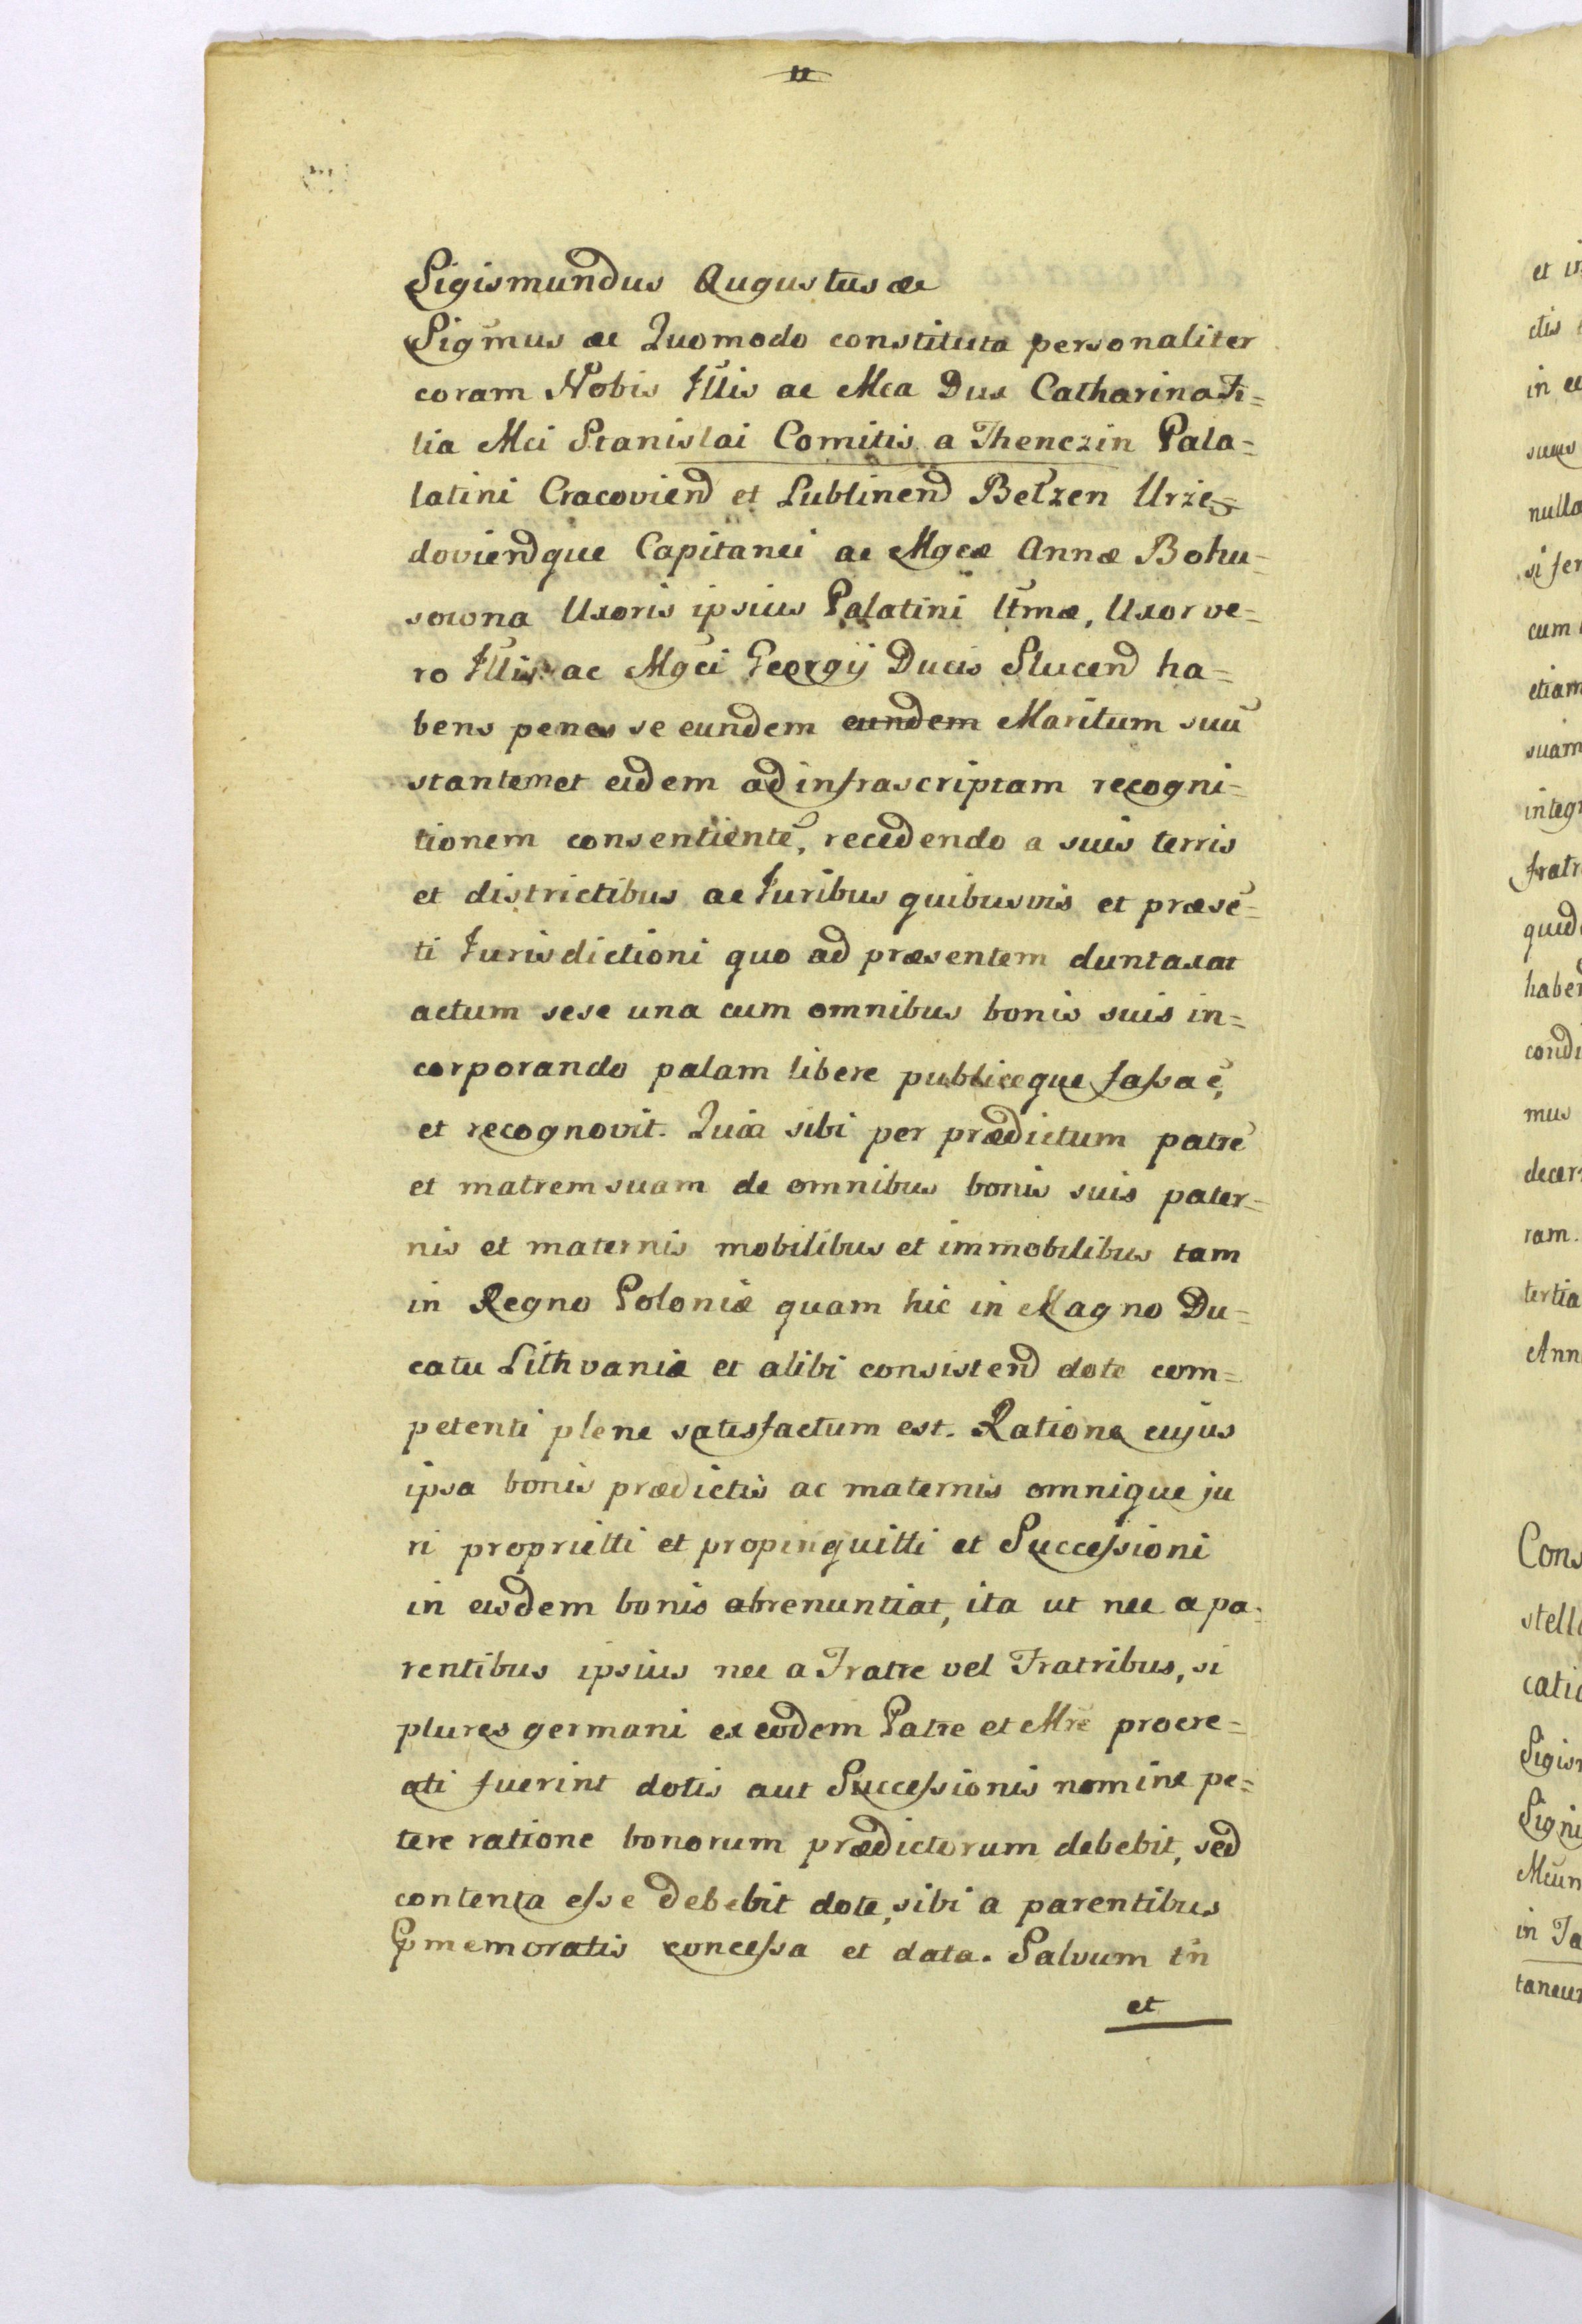 Sigismundus Augustus ac
Sigm̄us ac Quomodo constituta personaliter
coram Nobis Illis ac Mca Dna Catharina Fi=
lia Mci Stanislai Comitis a Thenczin Pala=
latini Cracovien̄ et Lublinen̄ Betzen Urze=
dovien̄que Capitanei ac Mgcæ Annæ Bohu=
sowna Uxoris ipsius Palatini ltmæ, Uxor ve=
ro Illis ac Mgci Georgij Ducis Slucen̄ ha=
bens penes se eundem eundem Maritum suū
stantem et eidem ad infrascriptam recogni=
tionem consentientē, recedendo a suis terris
et districtibus ac Juribus quibusvis et præsē=
ti Jurisdictioni quo ad præsentem duntaxat
actum sese una cum omnibus bonis suis in=
corporando palam libere publiceque faſsa ē,
et recognovit. Quia sibi per prædictum patrē
et matrem suam de omnibus bonis suis pater=
nis et maternis mobilibus et immobilibus tam
in Regno Poloniæ quam hic in Magno Du=
catu Lithvaniæ et alibi consisten̄ dote com=
petenti plene satisfactum est. Ratione cujus
ipsa bonis prædictis ac maternis omnique ju
ri proprietti et propinquitti et Succeſsioni
in eisdem bonis abrenuntiat, ita ut nec a pa=
rentibus ipsius nec a Fratre vel Fratribus, si
plures germani ex eodem Patre et Mr̄e procre=
ati fuerint dotis aut Succeſsionis nomine pe=
tere ratione bonorum prædictorum debebit, sed
contenta eſse debebit dote, sibi a parentibus
p̄memoratis conceſsa et data. Salvum in
et
et in
ctis
in
suus
nulla
si fer
cum
etiam
suam
integr
fratr
quid
haben
condi
mus
decer
ram.
tertia
Ann
Cons
stell
catio
Sigis
Signi
Mcun
in Ja
taneu